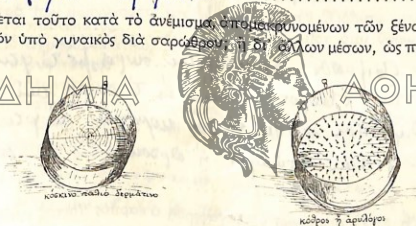 εται τοῦτο κατὰ τὸ ἀνέμισμα, ἀπομακρυνομένων τῶν ξένω
όν ὑπὸ γυναικὸς διὰ σαρώθρου, ἢ δι' ἄλλων μέσων, ὡς π
ΔΗΜΙΑ
ΑΘΗ
κόσκινο παλιό δερμάτινο
κόθρος ἢ ἀρυλόγος